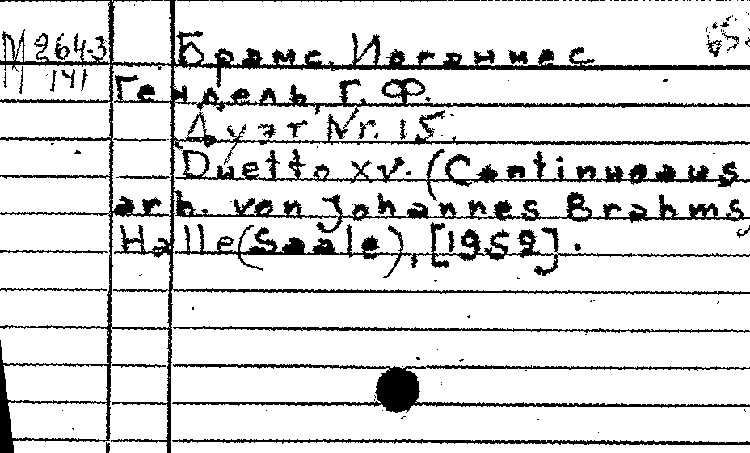 М 264-3 Брамс. Иоганнес
141 Гендель, Г. Ф.
Дуэт Nr. 15.
Duetto XV. (Continuoaus
arb. von Johannes Brahms
Halle (Saale), [1959].